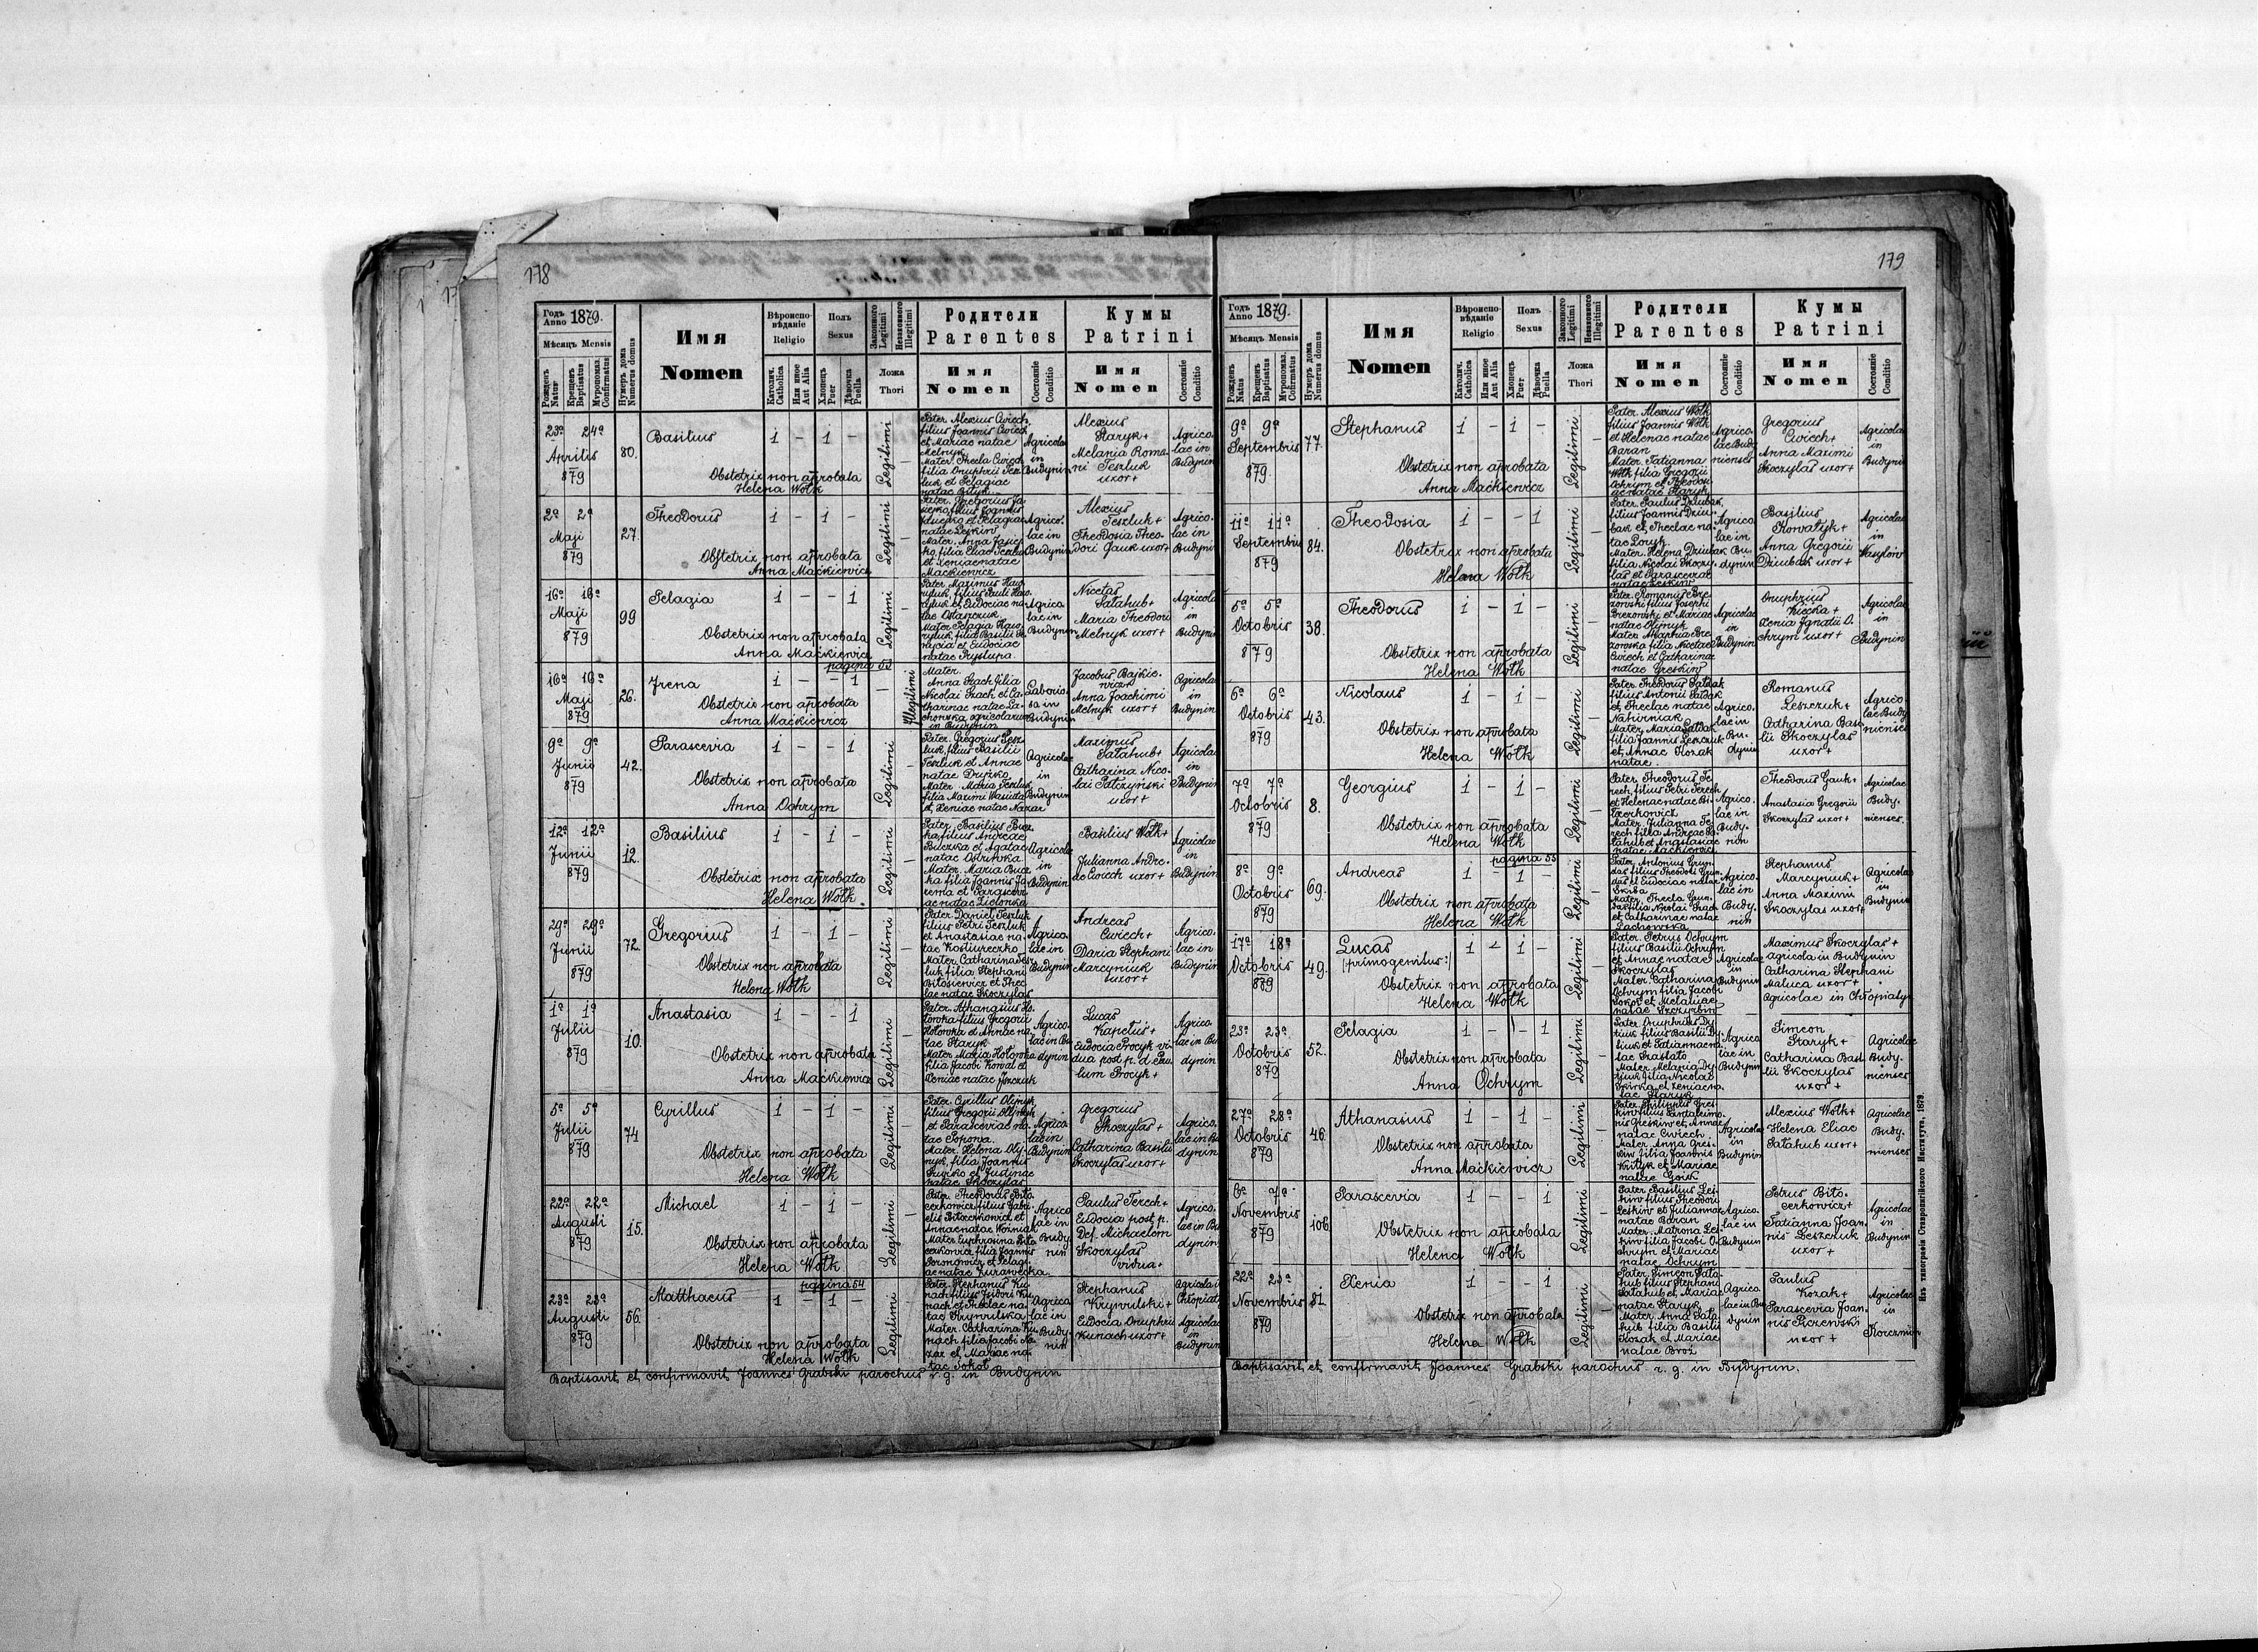 178
Годъ Anno 1879.
Мѣсяцъ Mensis
Рожденъ Natus
Крещенъ Baptisatus
Муропомаз. Confirmatus
Нумеръ дома Numerus domus
Имя
Nomen
Вѣроиспо-
вѣданіе
Religio
Католич. Catholica
Или иное Aut Alia
Полъ
Sexus
Хлопецъ Puer
Дѣвочка Puella
Законного Legitimi
Незаконного Illegitimi
Ложа
Thori
Родители
Parentes
Имя
Nomen
Состояніе Conditio
Кумы
Patrini
Имя
Nomen
Состояніе Conditio
23a 24a
Aprilis
879
80.
Basilius
1 - 1 -
Obstetrix non aprobata
Helena Wołk
Legitimi
Pater. Alexius Cwiech
filius Joannis Cwiech
et Mariae natae
Melnyk
Mater. Thecla Cwiech
filia Onuphrii Tesz-
luk et Pelagiae
natae Bityk
Agricolae
in
Budynin
Alexius
Staryk+
Melania Roma-
ni Teszluk
uxor+
Agrico-
lae in
Budynin
2a 2a
Maji
879
27.
Theodorus
1 - 1 -
Obstetrix non aprobata
Anna Mackiewicz
Legitimi
natae Leskiw
et Xeniae natae
Mackiewicz
Agrico-
lae in
Budynin
Alexius
Teszluk +
Theodosia Theo-
dori Gauk uxor+
Agrico-
lae in
Budynin
16a 16a
Maji
879
99
Pelagia
1 - - 1
Obstetrix non aprobata
Anna Mackiewicz
Legitimi
natae Prystupa
Agrico-
lae in
Budynin
Nicetas
Patahub+
Maria Theodori
Melnyk uxor+
Agricolae
in
Budynin
pagina 53
16a 16a
Maji
879
26.
Irena
1 - - 1
Obstetrix non aprobata
Anna Mackiewicz
Illegitimi
Mater.
Anna Stach filia
Nicolai Stach et Ca-
tharinae natae La-
chowska agricolarum
in Budynin
Laborio-
sa in
Budynin
Jacobus Bajkie-
wicz+
Anna Joachimi
Melnyk uxor+
Agricolae
in
Budynin
9a 9a
Junii
879
42.
Parascevia
1 - - 1
Obstetrix non aprobata
Anna Ochrym
Legitimi
Pater. Gregorius Tesz-
luk, filius Basilii
Teszluk et Annae
natae Dusko
Mater. Maria Teszluk
et Xeniae natae Nazar
Agricolae
in
Budynin
Maximus
Patahub+
Catharina Nico-
lai Patczyński
uxor+
Agricolae
in
Budynin
12a 12a
Junii
879
12.
Basilius
1 - 1 -
Obstetrix non aprobata
Helena Wołk.
Legitimi
Pater. Basilius Bucz-
ka, filius Andreae
Buczka et Agatae
natae Ostrivka
Mater. Maria Bucz-
ka filia Joannis Ja-
rema et Parascevi-
ae natae Zielonka
Agricolae
in
Budynin
Basilius Wołk+
Julianna Andre-
ae Cwiech uxor+
Agricolae
in
Budynin
29a 29a
Junii
879
72.
Gregorius
1 - 1 -
Obstetrix non aprobata
Helena Wołk
Legitimi
Pater. Daniel Teszluk
filius Petri Teszluk
et Anastasiae na-
tae Kostiureczko
Mater. Catharina Tesz-
luk filia Stephani
Bitosiewicz et Thec-
lae natae Skoczylas
Agrico-
lae in
Budynin
Andreas
Cwiech+
Daria Stephani
Marcyniuk
uxor+
Agrico-
lae in
Budynin
1a 1a
Julii
879
10.
Anastasia
1 - - 1
Obstetrix non aprobata
Anna Mackiewicz
Legitimi
Pater. Athanasius Ho-
łowka filius Gregorii
Hołowka et Annae na-
tae Staryk
Mater Maria Hołowka
filia Jacobi Kowal et
Xeniae natae Jszczuk
Agrico-
lae in Bu-
dynin
Lucas
Kapelus+
Eudocia Procyk vi-
dua post p. d. Pau-
lum Procyk +
Agrico-
lae in Bu-
dynin
5a 5a
Julii
879
74
Cyrillus
1 - 1 -
Obstetrix non aprobata
Helena Wołk
Legitimi
Pater. Cyrillus Olijnyk
filius Gregorii Olijnyk
et Parasceviae na-
tae Popowa.
Mater. Helena Olij-
nyk, filia Joannis
Dusko et Justinae
natae Skoczylas
Agrico-
lae in
Budynin
Gregorius
Skoczylas +
Catharina Basilii
Skoczylas uxor+
Agrico-
lae in Bu-
dynin
22a 22a
Augusti
879
15.
Michael
1 - 1 -
Obstetrix non aprobata
Helena Wołk
Legitimi
Pater. Theodorus Biło-
cerkowicz, filius Gabri-
elis Biłocerkowicz et
Annae natae Woźniak
Mater Euphrosina Biło-
cerkowicz, filia Joannis
Agrico-
lae in
Budy-
nin
Paulus Terech+
Eudocia post p.
Def. Michaelom
Skoczylas
vidua+
Agrico-
lae in Bu-
dynin
pagina 54
23a 23a
Augusti
879
56.
Matthaeus
1 - 1 -
Obstetrix non aprobata
Helena Wołk
Legitimi
Pater. Stephanus Ku-
nach filius Isidori Ku-
nach et Theclae na-
tae Krywulska
Mater. Catharina Ku-
nach, filia Jacobi Na-
zar et Mariae na-
tae Sokoł
Agrico-
lae in
Budy-
nin
Stephanus
Krywulski+
Eudocia Onuphrii
Kunach uxor+
Agricolae
Agricolae
in
Budynin
Baptisavit et confirmavit Joannes Grabski parochus r. g. in Budynin
179
Годъ Anno 1879.
Мѣсяцъ Mensis
Рожденъ Natus
Крещенъ Baptisatus
Муропомаз. Confirmatus
Нумеръ дома Numerus domus
Имя
Nomen
Вѣроиспо-
вѣданіе
Religio
Католич. Catholica
Или иное Aut Alia
Полъ
Sexus
Хлопецъ Puer
Дѣвочка Puella
Законного Legitimi
Незаконного Illegitimi
Ложа
Thori
Родители
Parentes
Имя
Nomen
Состояніе Conditio
Кумы
Patrini
Имя
Nomen
Состояніе Conditio
9a 9a
Septembris
879
77.
Stephanus
1 - 1 -
Obstetrix non aprobata
Anna Mackiewicz
Legitimi
Pater. Alexius Wołk
filius Joannis Wołk
et Helenae natae
Baran
Mater. Tatianna
Wołk filia Gregorii
Ochrym et Theodosi-
ae natae Staryk
Agrico-
lae Budy-
nienses
Gregorius
Cwiech+
Anna Maximi
Skoczylas uxor+
Agricolae
in
Budynin
11a 11a
Septembris
879
84.
Theodosia
1 - - 1
Obstetrix non aprobata
Helena Wołk
Legitimi
Pater. Paulus Dziubak
filius Joannis Dziu-
bak et Theclae na-
Mater. Helena Dziubak
filia Nicolai Skoczy-
las et Parasceviae
natae Leskiw
Agrico-
lae in
Bu-
dynin
Basilius
Kowałyk+
Anna Gregorii
Dziubak uxor+
Agricolae
in
Wasylow
5a 5a
Octobris
879
38.
Theodorus
1 - 1 -
Obstetrix non aprobata
Helena Wołk
Legitimi
Pater. Romanus Bre-
zowski filius Josephi
Brezowski et Mariae
natae Olijnyk
Mater Agaphia Bre-
zowska filia Nicetae
Cwiech et Catharinae
natae Greskiw
Agricolae
in
Budynin
Onuphrius
Kiczka +
Xenia Ignatii O-
chrym uxor+
Agricolae
in
Budynin
6a 6a
Octobris
879
43.
Nicolaus
1 - 1 -
Obstetrix non aprobata
Helena Wołk
Legitimi
Pater. Theodorus Sałdak
filius Antonii Sałdak
et Theclae natae
Nahirniak
Mater, Maria Sałdak
filia Joannis Leszczuk
et Annae Kozak
natae.
Agrico-
lae in
Bu-
dynin
Romanus
Leszczuk+
Catharina Basi-
lii Skoczylas
uxor+
Agrico-
lae Budy-
nienses
7a 7a
Octobris
879
8.
Georgius
1 - 1 -
Obstetrix non aprobata
Helena Wołk
Legitimi
Pater Theodorus Te-
rech, filius Petri Terech
et Helenae natae Bi-
łocerkowicz
Mater, Julianna Te-
rech filia Andreae Pa-
tahub et Anastasiae
natae Mackiewicz
Agrico-
lae in
Budy-
nin
Theodorus Gauk+
Anastasia Gregorii
Skoczylas uxor+
Agricolae
Budy-
nienses.
pagina 55
8a 9a
Octobris
879
69.
Andreas
1 - 1 -
Obstetrix non aprobata
Helena Wołk
Legitimi
et Catharinae natae
Lachowska
Agrico-
lae in
Budy-
nin
Stephanus
Marcyniuk+
Anna Maximi
Skoczylas uxor+
Agricolae
in
Budynin
17a 18a
Octobris
879
49.
Lucas
(primogenitus:)
1 - 1 -
Obstetrix non aprobata
Helena Wołk
Legitimi
Pater. Petrus Ochrym
filius Basilii Ochrym
et Annae natae
Skoczylas
Mater. Catharina
Ochrym filia Jacobi
Sokoł et Melaniae
natae Szczyrbin
Agricolae
in
Budynin
Maximus Skoczylas +
agricola in Budynin
Catharina Stephani
Matuca uxor +
Agricolae in Chłopiatyn
23a 23a
Octobris
879
52.
Pelagia
1 - - 1
Obstetrix non aprobata
Anna Ochrym
Legitimi
tae Staryk
Agrico-
lae in
Budynin
Simeon
Staryk+
Catharina Basi-
lii Skoczylas
uxor+
Agricolae
Budy-
nienses
27a 28a
Octobris
879
46.
Athanasius
1 - 1 -
Obstetrix non aprobata
Anna Mackiewicz
Legitimi
Pater. Philippus Gres-
kiw filius Pantaleimo-
nis Greskiw et Annae
natae Cwiech
Mater. Anna Gres-
kiw filia Joannis
Krityk et Mariae
natae Gauk
Agricolae
in
Budynin
Alexius Wołk+
Helena Eliae
Patahub uxor+
Agricolae
Budy-
nienses
6a 7a
Novembris
879
106
Parascevia
1 - - 1
Obstetrix non aprobata
Helena Wołk
Legitimi
Pater Basilius Les-
kiw filius Theodori
Leskiw et Juliannae
natae Baran
Mater. Matrona Les-
kiw filia Jacobi O-
chrym et Mariae
natae Ochrym
Agrico-
lae in
Budynin
Petrus Biło-
cerkowicz+
Tatianna Joan-
nis Leszczuk
uxor+
Agricolae
in
Budynin
22a 23a
Novembris
879
81.
Xenia
1 - - 1
Obstetrix non aprobata
Helena Wołk
Legitimi
Pater. Simeon Pata-
hub filius Stephani
Patahub et Mariae
natae Staryk
Mater. Anna Pata-
hub filia Basilii
Kozak et Mariae
natae Broż
Agrico-
lae in Bu-
dynin
Paulus
Kozak+
Parascevia Joan-
nis
uxor +
Agricolae
in
Korczmin
Baptisavit et confirmavit Joannes Grabski parochus r. g. in Budynin.
Изъ типографіи Ставропигійского Института, 1879.